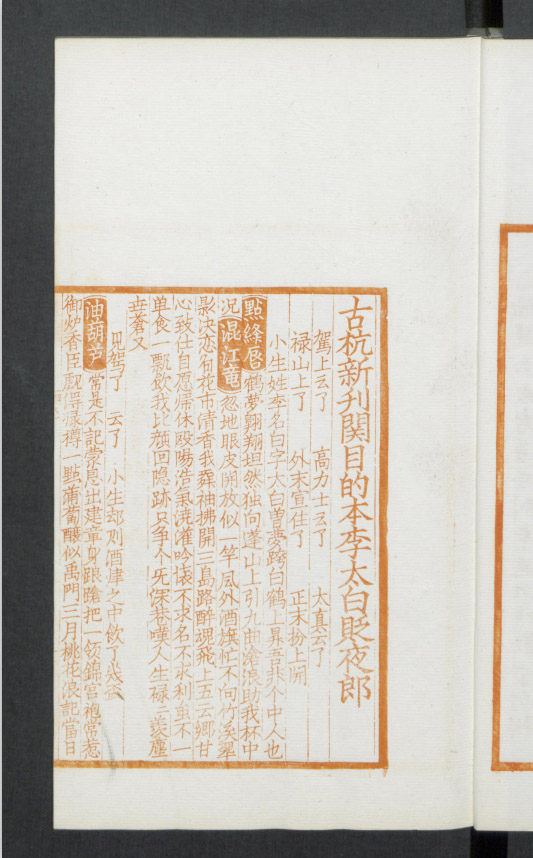 古杭新刋関目的本李太白貶夜郎
駕上云了　高力士云了　太真云了
禄山上了　外末宣住了　正末扮上開
小生姓李名白字太白曽夢跨白鶴上昇吾非个中人也
點絳唇 鶴夢翱翔坦然独向蓬山上引九曲滄浪助我杯中
况 混江竜 忽地眼皮開放似一竿风外酒旗忙不向竹溪翠
影决恋甸花市清香我舞袖拂開三島路醉魂飛上五云郷甘
心致仕自愿帰休殴陽浩氣澆灌吟懐不求名不求利虽不一
单食一瓢飲我比顔回隐跡只争个无深巷嘆人生禄羡塵
又
見駕了　云了　小生却則酒肆之中飲了幾盃
油葫芦 常是不記蒙恩出建章身踉蹌把一領錦宫袍常惹
御炉香臣覷得緑樽一點蒲萄釀似禹門三月桃花浪記當日